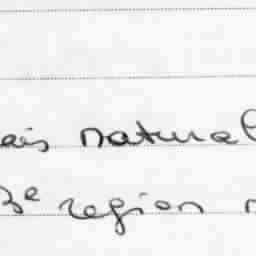 ais natural
3e region